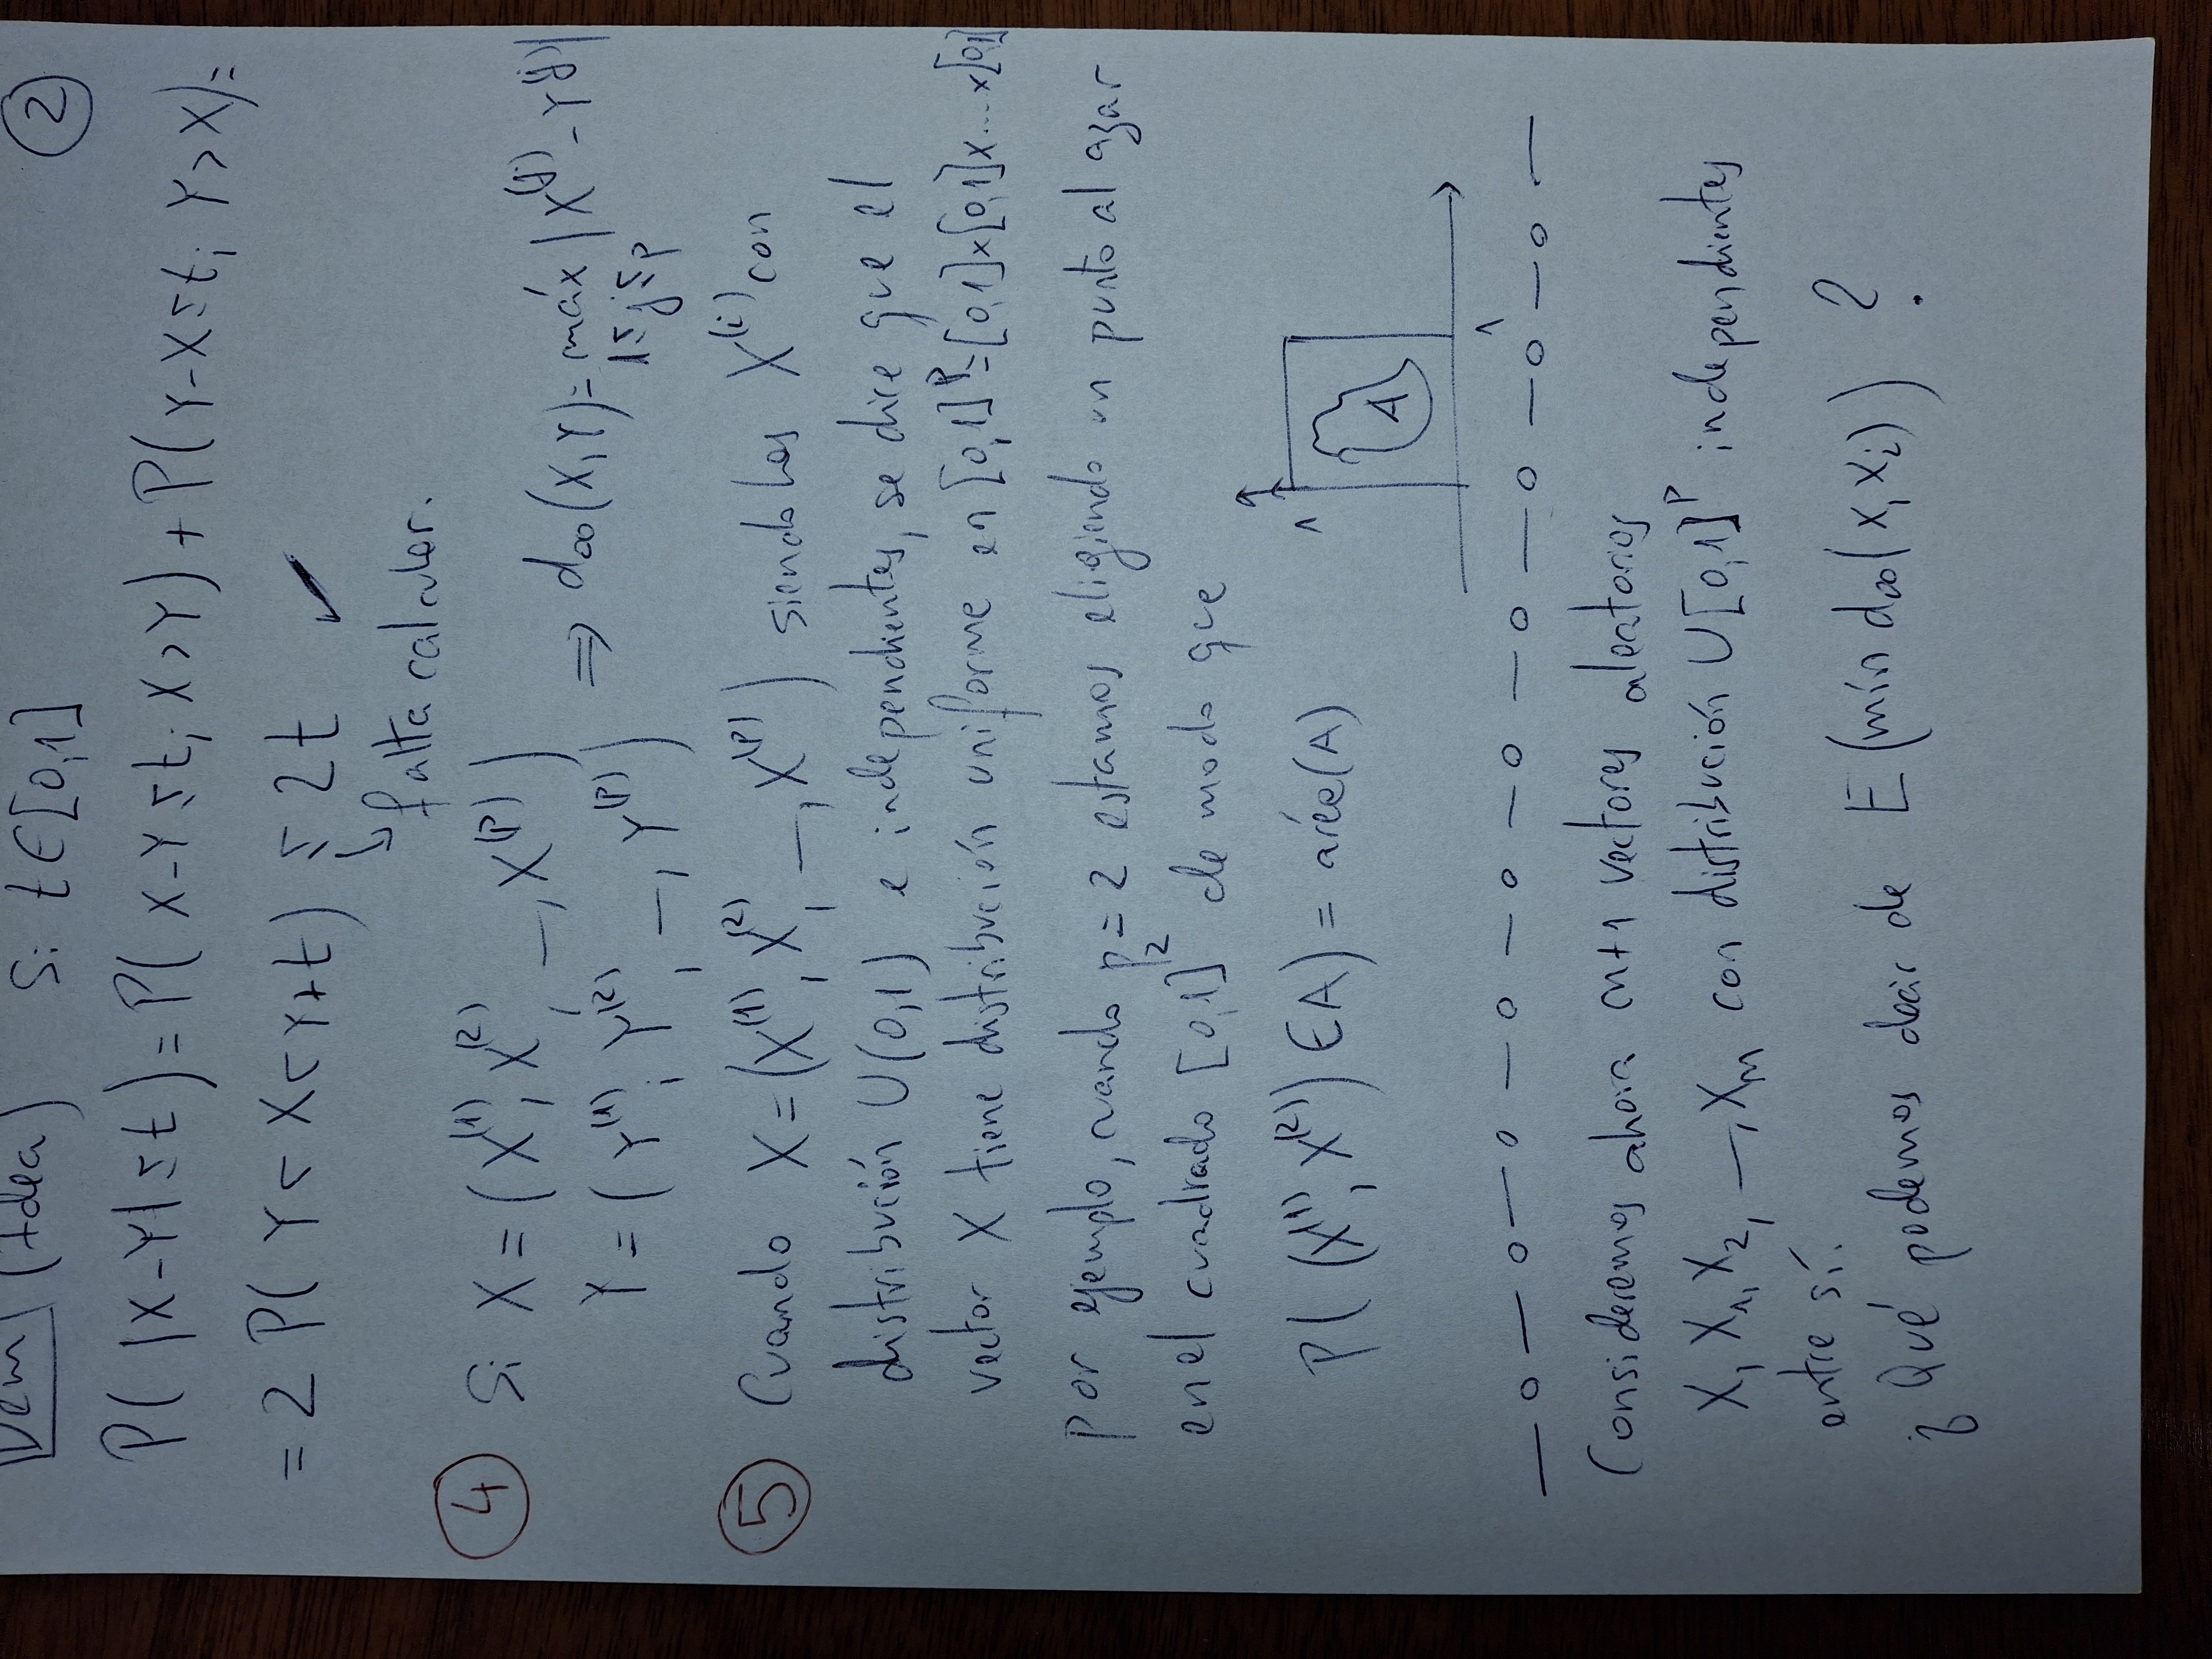 Dem (Idea) Si t∈[0,1] ②
P( |X-Y| ≤ t) = P( X-Y ≤ t; X > Y) + P( Y-X ≤ t; Y > X) =
= 2 P( Y < X < Y+t) ≤ 2t ✓
↳ falta calcular.
④ Si X = (X^(1), X^(2), —, X^(p))
Y = (Y^(1), Y^(2), —, Y^(p)) ⇒ d∞(X,Y) = máx |X^(j) - Y^(j)|
1≤j≤p
⑤ Cuando X = (X^(1), X^(2), —, X^(p)) siendo los X^(i) con
distribución U(0,1) e independientes, se dice que el
vector X tiene distribución uniforme en [0,1]^p = [0,1]x[0,1]x...x[0,1]
por ejemplo, cuando p=2 estamos eligiendo un punto al azar
en el cuadrado [0,1]^2 de modo que
P( (X^(1), X^(2)) ∈ A) = área(A)
1
A
1
Consideremos ahora m+1 vectores aleatorios
X, X₁, X₂, —, Xₘ con distribución U[0,1]^p independientes
entre sí.
¿Qué podemos decir de E(mín d∞(X, Xᵢ)) ?